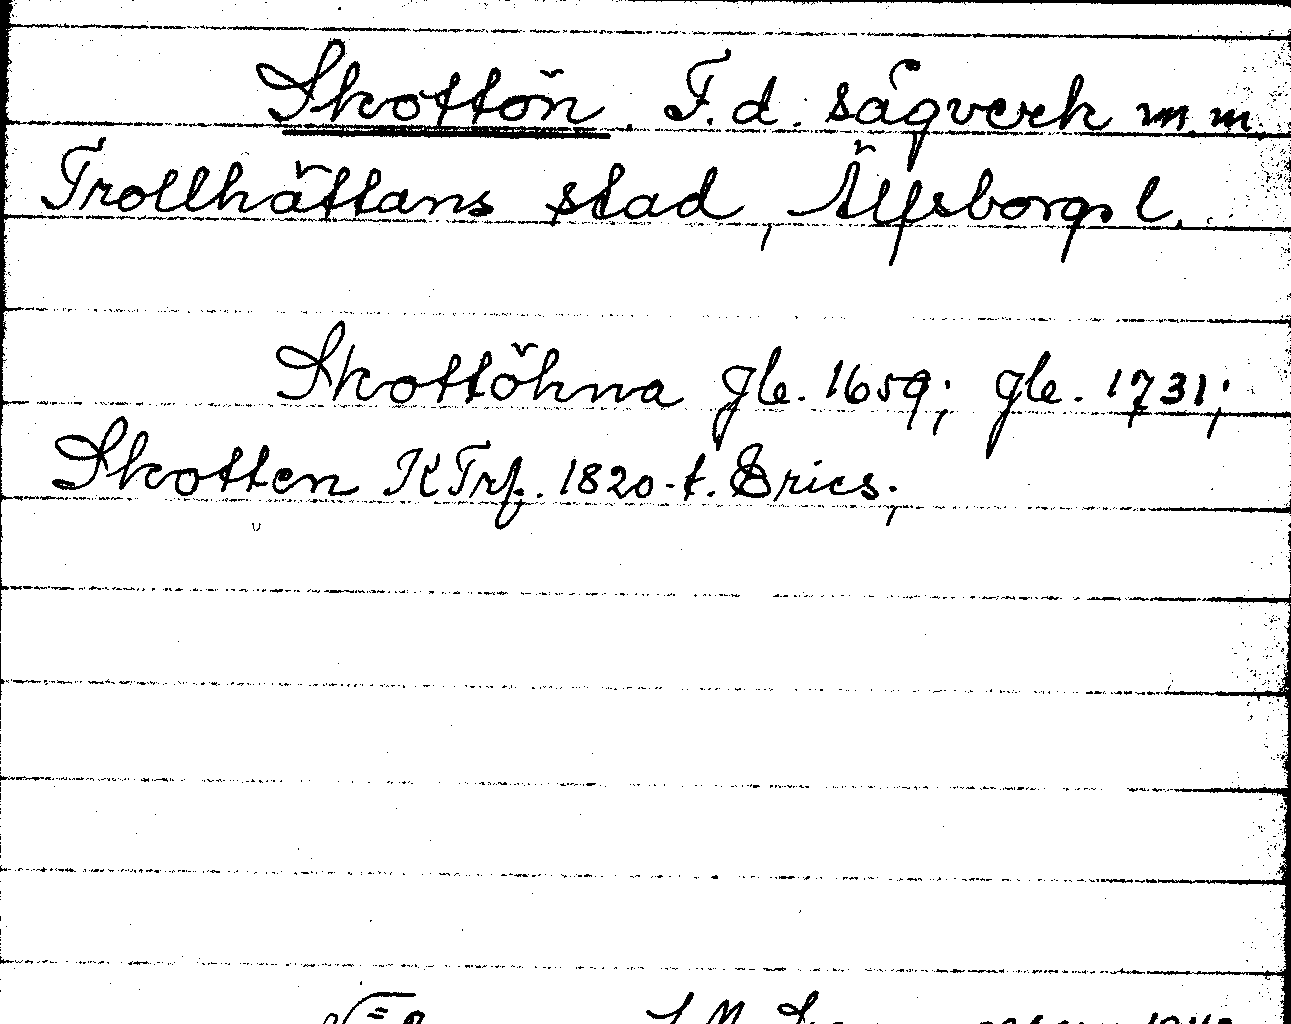 Skottön. F.d. sågverk m.m.
Trollhättans stad, Älfsborgs l.
Skottöhna gle. 1659; gle. 1731;
Skotten KTrf. 1820-t. Brics.;